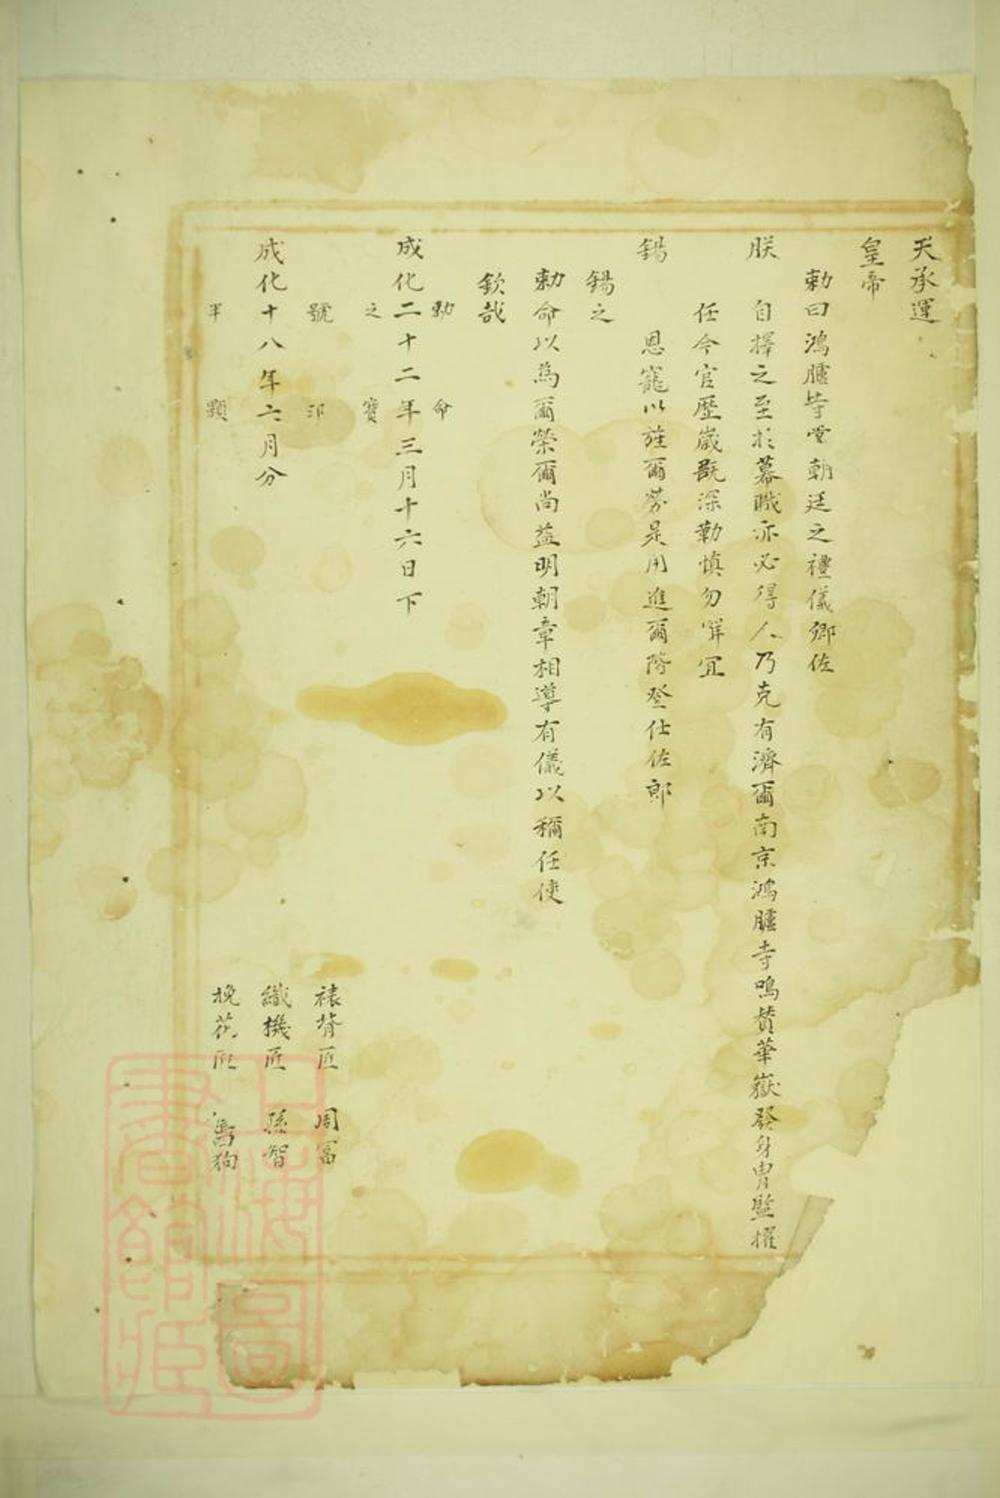 天承運
皇帝
勅曰鴻臚寺掌朝廷之禮儀卿佐
朕
自擇之至於幕職亦必得人乃克有濟爾南京鴻臚寺鳴贊華嶽發身胄監擢
任今官歷歲既深勤慎勿懈宜
錫
恩寵以旌爾勞是用進爾階登仕佐郎
錫之
勅命以為爾榮爾尚益明朝章相導有儀以稱任使
欽哉
勅命
成化二十二年三月十六日下
之寶
號
成化十八年六月分
半顆
裱背匠 周冨
織機匠 孫智
挽花匠 馮狗
上海圖書館藏